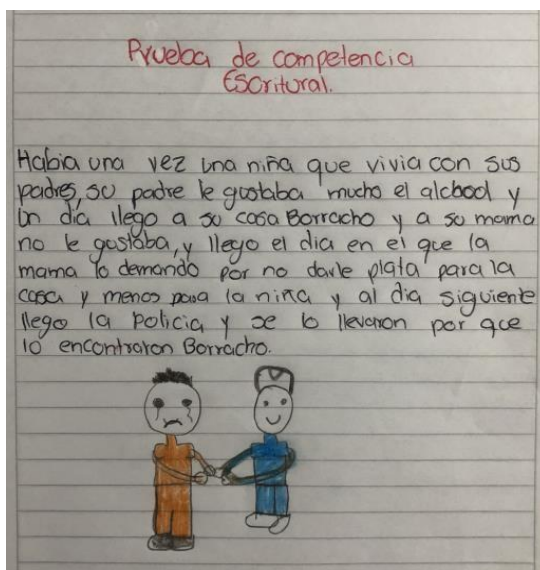 Prueba de competencia
Escritural.
Habia una vez una niña que vivia con sus
padres, su padre le gustaba mucho el alchool y
un dia llego a su casa Borracho y a su mama
no le gustaba, y llego el dia en el que la
mama lo demando por no darle plata para la
casa y menos para la niña y al dia siguiente
llego la policia y se lo llevaron por que
lo encontraron Borracho.